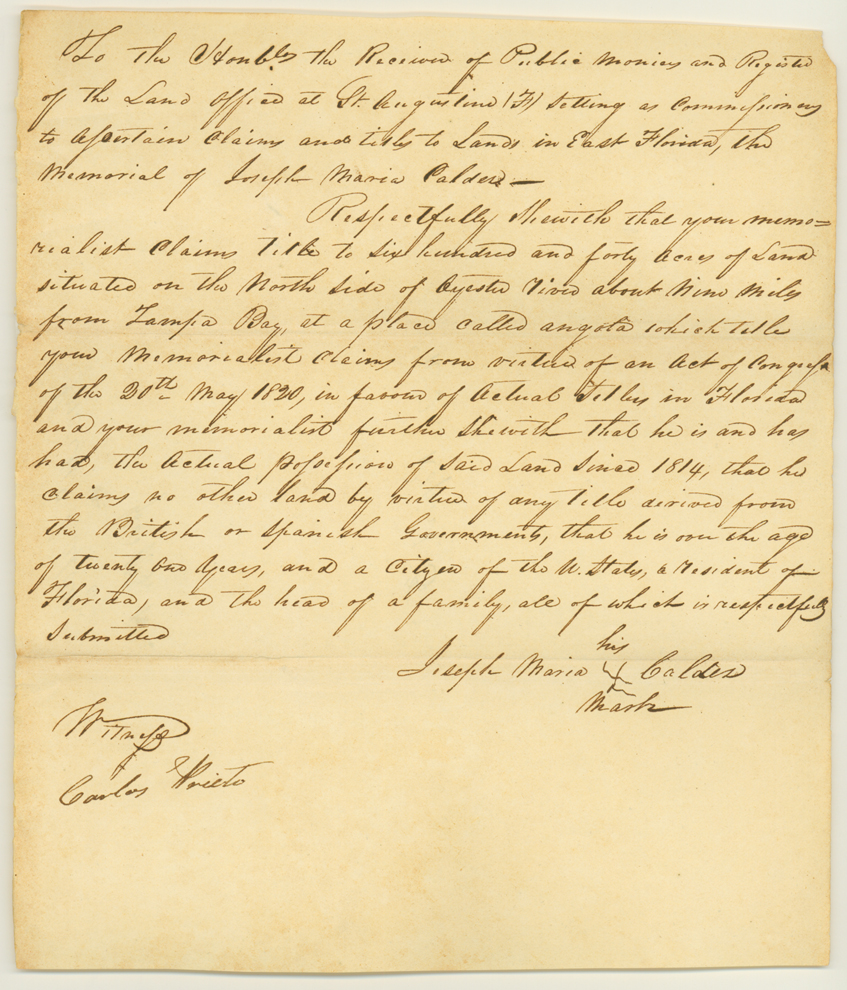 To the Honbles the Receiver of Public Monies and Register
of the Land Office at St. Augustine (F) setting as Commissioners
to Assertain Claims and titles to Lands in East Florida, the
Memorial of Joseph Maria Caldez —
Respectfully Shewith that your memo=
rialist Claims title to six hundred and forty Acres of Land
situated on the North side of Oyester River about Nine Miles
from Tampa Bay, at a place called angola which title
your Memorialist Claims from virtue of an Act of Congress
of the 20th May 1820, in favour of Actual Titles in Florida
and your memorialist further Shewith that he is and has
had, the Actual possession of said Land since 1814, that he
claims no other land by virtue of any title derived from
the British or Spanish Governments, that he is over the age
of twenty one Years, and a Citizen of the U. States, a resident of
Florida, and the head of a family, all of which is respectfully
Submitted
his
Joseph Maria X Caldez
Mark
Witness
Carlos Prieto